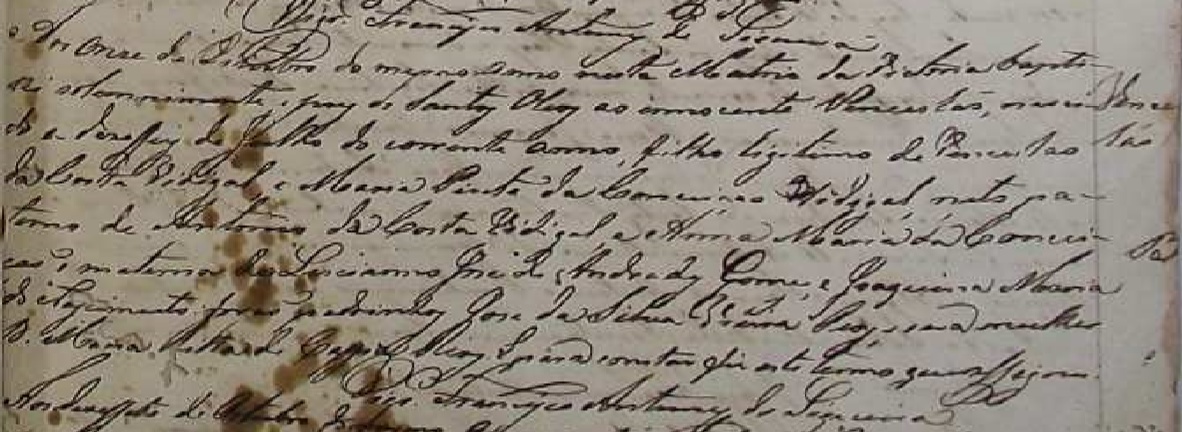 Vigr.º Francisco Antunes de Siqueira
Aos Onze de Outubro do mesmo anno nesta Matris da Victoria baptí-
zei solemnimente, e puz os Santos Oleos ao innocente Vencesláo, nasci-
do a deseseis de Julho do corrente anno, filho legitimo de Venceslao
da Costa Vidigal, e Maria Pinta da Conceicáo Vidigal, neto pa-
terno de Antonio da Costa Vidigal, e Anna Maria da Concei-
cao, e materno de Luscianno José de Andrade Gomes, e Joaquina Maria
do Nascimento, forao padrinhos José da Silva e sua mulher
D. Maria e para constar fis este termo que assignei.
Vigr.º Francisco Antunes de Siqueira
Aos desessete de Outubro do mesmo
Vences
láo